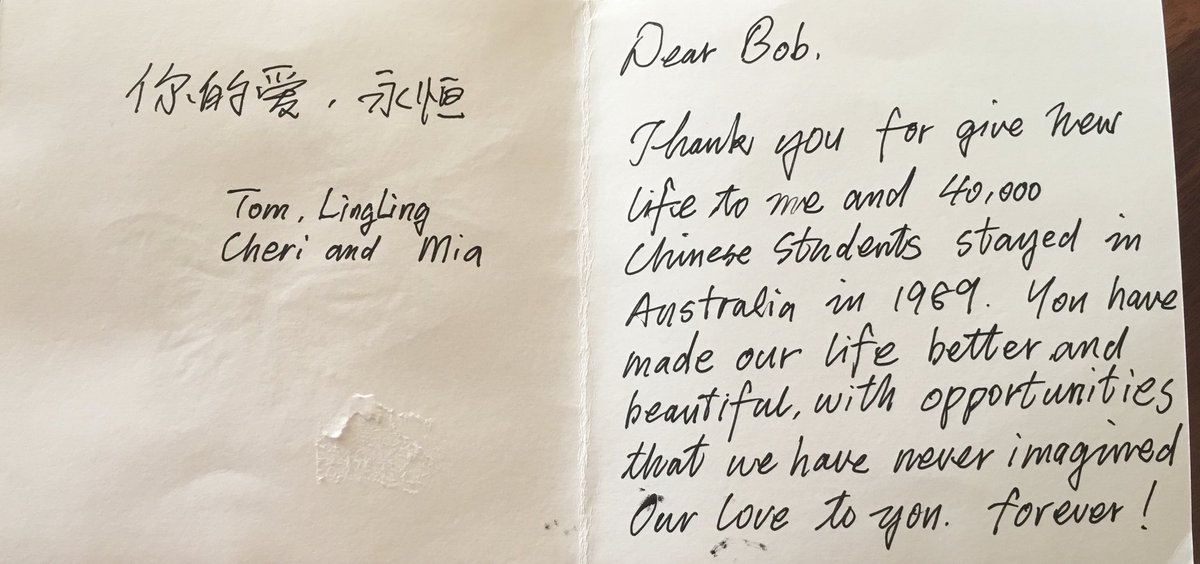 你的爱，永恒
Tom, LingLing
Cheri and Mia
Dear Bob,
Thank you for give new
life to me and 40,000
Chinese Students stayed in
Australia in 1989. You have
made our life better and
beautiful, with opportunities
that we have never imagined
Our love to you. forever!